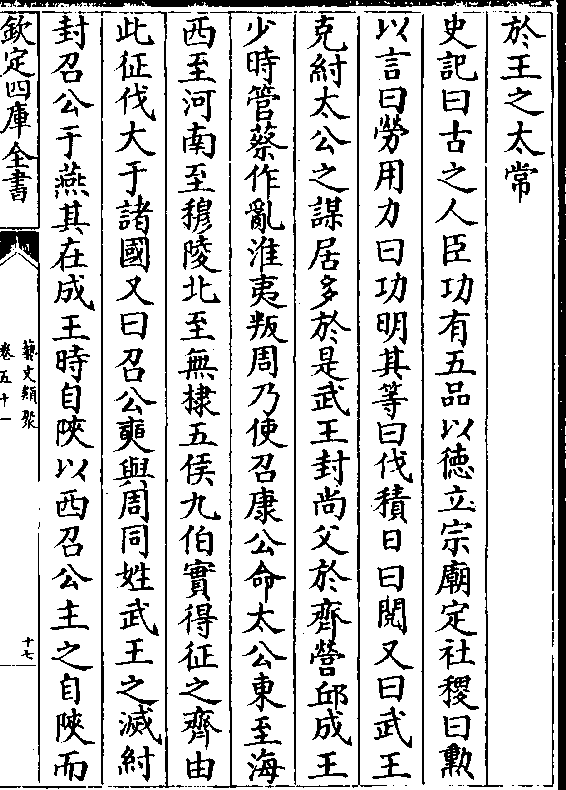 於王之太常
史記曰古之人臣功有五品以徳立宗廟定社稷曰勲
以言曰勞用力曰功明其等曰伐積日曰閱又曰武王
克紂太公之謀居多於是武王封尚父於齊營邱成王
少時管蔡作亂淮夷叛周乃使召康公命太公東至海
西至河南至穆陵北至無棣五侯九伯實得征之齊由
此征伐大于諸國又曰召公奭與周同姓武王之滅紂
封召公于燕其在成王時自陜以西召公主之自陜而
欽定四庫全書
藝文類聚
卷五十一
十七